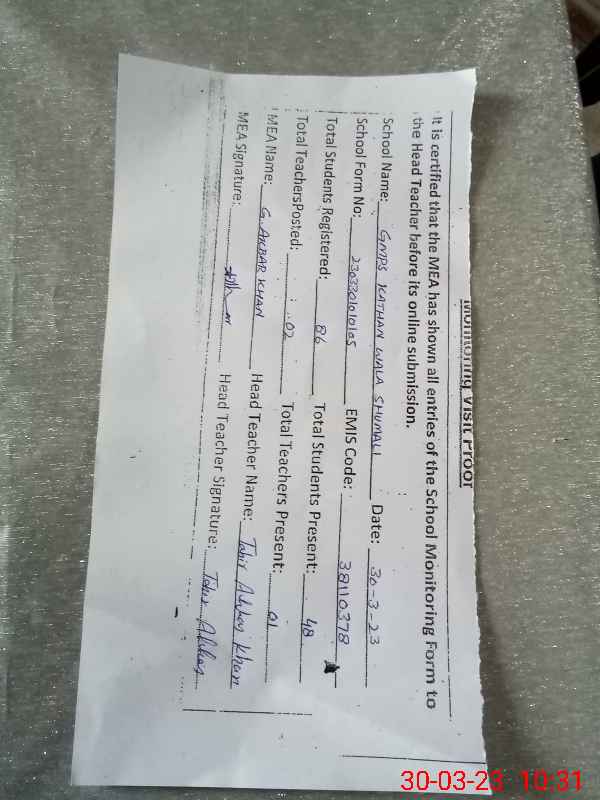 Monitoring Visit Proof
It is certified that the MEA has shown all entries of the School Monitoring Form to
the Head Teacher before its online submission.
School Name: GMPS KATHAN WALA SHUMALI Date: 30-3-23
School Form No: 2303301010105 EMIS Code: 38110378
Total Students Registered: 86 Total Students Present: 48
Total TeachersPosted: 02 Total Teachers Present: 01
MEA Name: G. AKBAR KHAN Head Teacher Name: Tahir Abbas Khan
MEA Signature: Head Teacher Signature: Tahir Abbas
30-03-23 10:31